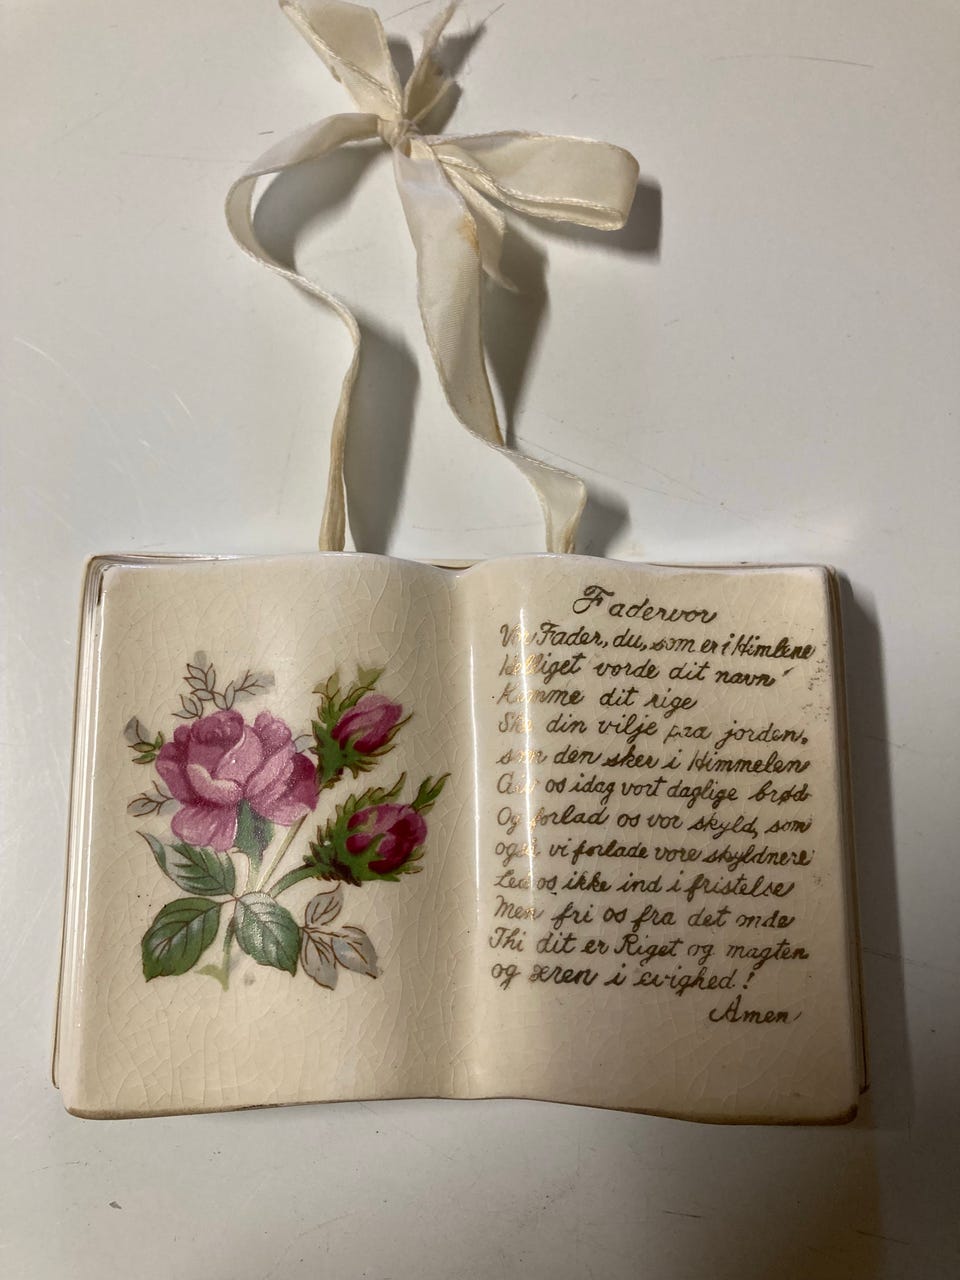 Fadervor
Vor Fader, du, som er i Himlene
Helliget vorde dit navn
Komme dit rige
Ske din vilje paa jorden,
som den sker i Himmelen
Giv os idag vort daglige brød
Og forlad os vor skyld, som
også vi forlade vore skyldnere
Led os ikke ind i fristelse
Men fri os fra det onde
Thi dit er Riget og magten
og æren i evighed!
Amen